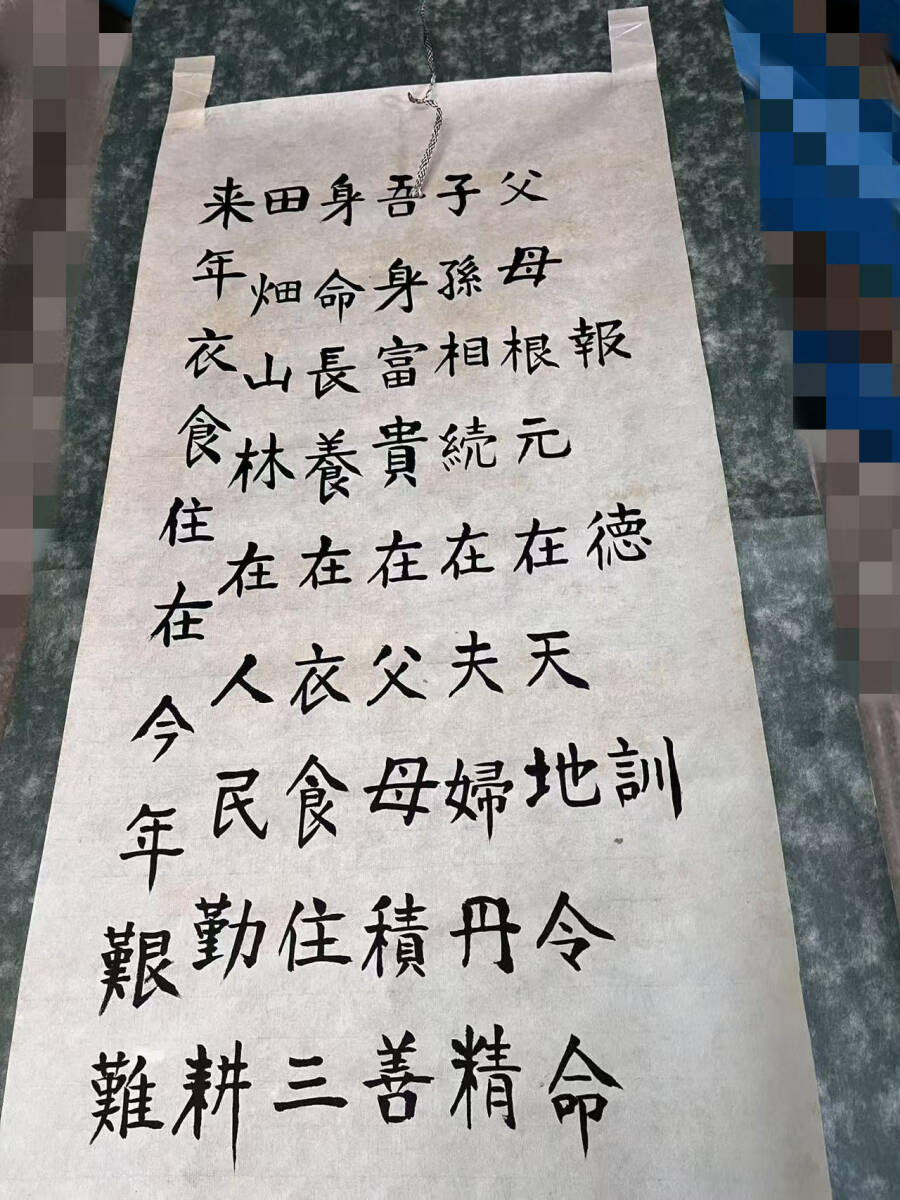 報徳訓
父母根元在天地令命
子孫相続在夫婦丹精
吾身富貴在父母積善
身命長養在衣食住三
田畑山林在人民勤耕
来年衣食住在今年艱難